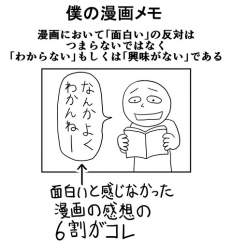 僕の漫画メモ
漫画において「面白い」の反対は
つまらないではなく
「わからない」もしくは「興味がない」である
なんかよく
わかんねー
面白いと感じなかった
漫画の感想の
6割がコレ